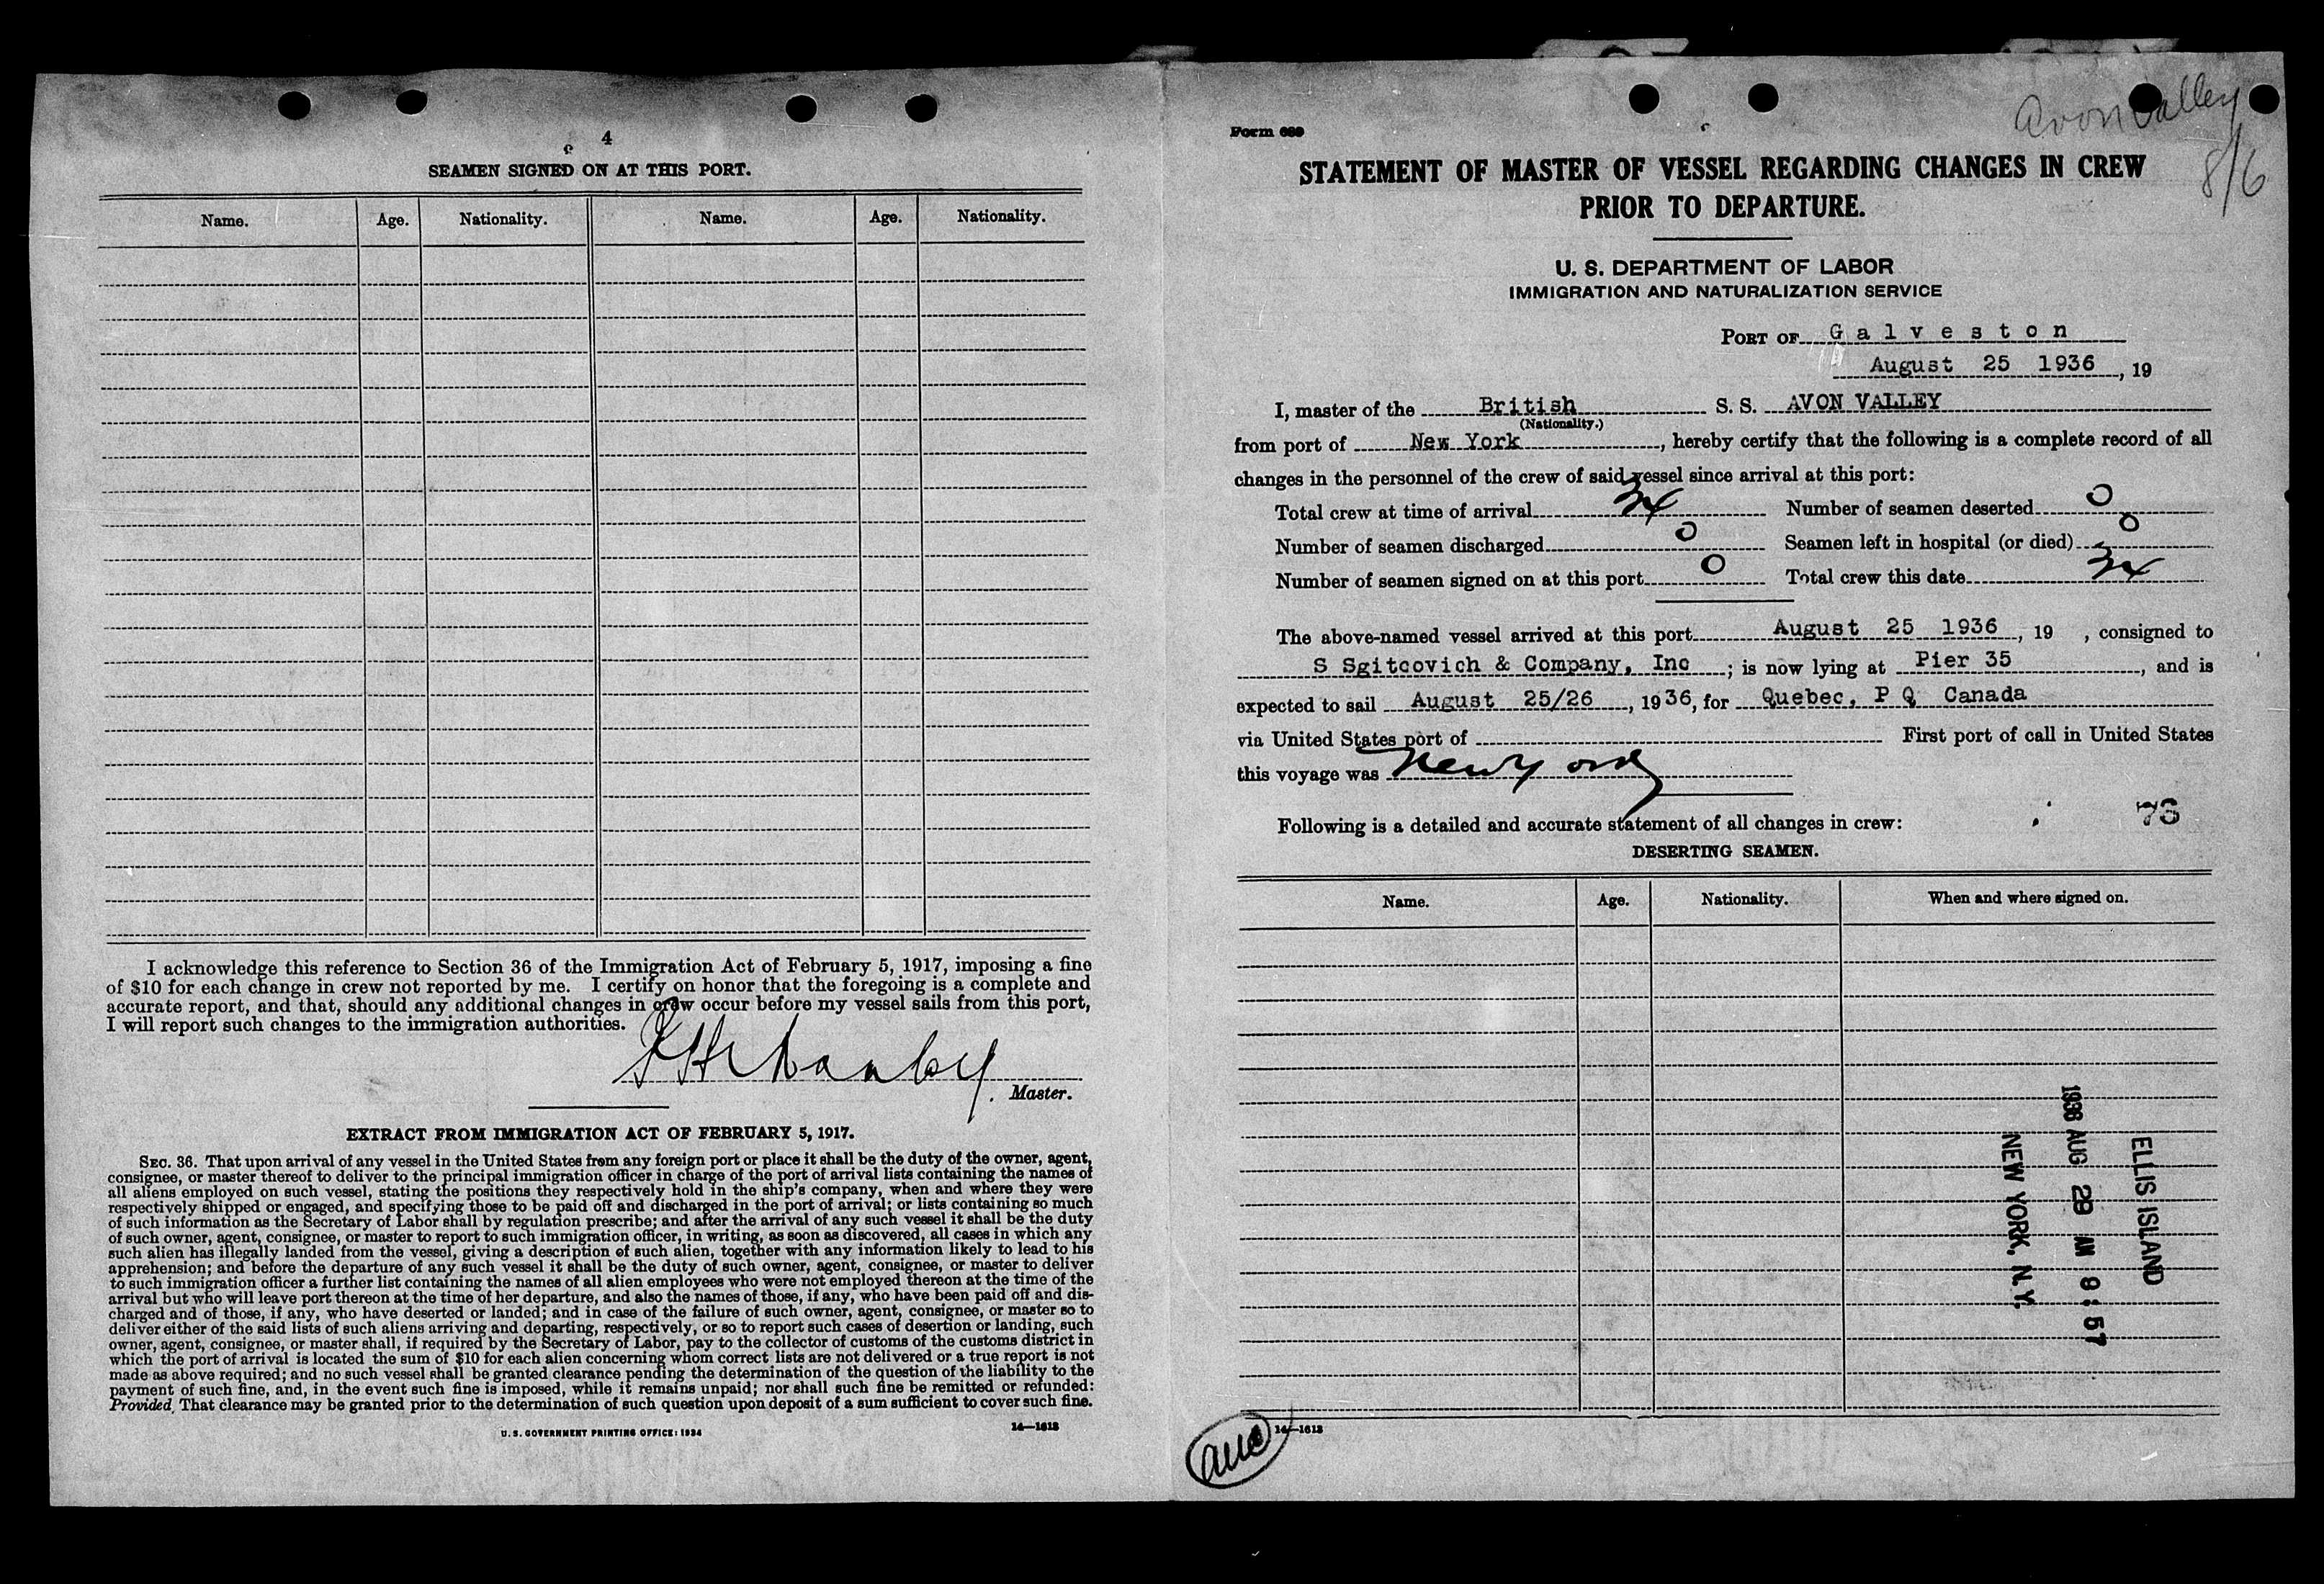 4
SEAMEN SIGNED ON AT THIS PORT.
Name. Age. Nationality. Name. Age. Nationality.
I acknowledge this reference to Section 36 of the Immigration Act of February 5, 1917, imposing a fine
of $10 for each change in crew not reported by me. I certify on honor that the foregoing is a complete and
accurate report, and that, should any additional changes in crew occur before my vessel sails from this port,
I will report such changes to the immigration authorities.
Master.
EXTRACT FROM IMMIGRATION ACT OF FEBRUARY 5, 1917.
SEC. 36. That upon arrival of any vessel in the United States from any foreign port or place it shall be the duty of the owner, agent,
consignee, or master thereof to deliver to the principal immigration officer in charge of the port of arrival lists containing the names of
all aliens employed on such vessel, stating the positions they respectively hold in the ship's company, when and where they were
respectively shipped or engaged, and specifying those to be paid off and discharged in the port of arrival; or lists containing so much
of such information as the Secretary of Labor shall by regulation prescribe; and after the arrival of any such vessel it shall be the duty
of such owner, agent, consignee, or master to report to such immigration officer, in writing, as soon as discovered, all cases in which any
such alien has illegally landed from the vessel, giving a description of such alien, together with any information likely to lead to his
apprehension; and before the departure of any such vessel it shall be the duty of such owner, agent, consignee, or master to deliver
to such immigration officer a further list containing the names of all alien employees who were not employed thereon at the time of the
arrival but who will leave port thereon at the time of her departure, and also the names of those, if any, who have been paid off and dis-
charged and of those, if any, who have deserted or landed; and in case of the failure of such owner, agent, consignee, or master so to
deliver either of the said lists of such aliens arriving and departing, respectively, or so to report such cases of desertion or landing, such
owner, agent, consignee, or master shall, if required by the Secretary of Labor, pay to the collector of customs of the customs district in
which the port of arrival is located the sum of $10 for each alien concerning whom correct lists are not delivered or a true report is not
made as above required; and no such vessel shall be granted clearance pending the determination of the question of the liability to the
payment of such fine, and, in the event such fine is imposed, while it remains unpaid; nor shall such fine be remitted or refunded:
Provided, That clearance may be granted prior to the determination of such question upon deposit of a sum sufficient to cover such fine.
U. S. GOVERNMENT PRINTING OFFICE: 1934 14—1613
Avon Valley
8/6
Form 689
STATEMENT OF MASTER OF VESSEL REGARDING CHANGES IN CREW
PRIOR TO DEPARTURE.
U. S. DEPARTMENT OF LABOR
IMMIGRATION AND NATURALIZATION SERVICE
PORT OF Galveston
August 25 1936, 19
I, master of the British S. S. AVON VALLEY
(Nationality.)
from port of New York, hereby certify that the following is a complete record of all
changes in the personnel of the crew of said vessel since arrival at this port:
Total crew at time of arrival 34 Number of seamen deserted 0
Number of seamen discharged 0 Seamen left in hospital (or died) 0
Number of seamen signed on at this port 0 Total crew this date 34
The above-named vessel arrived at this port August 25 1936, 19 , consigned to
S Sgitcovich & Company, Inc; is now lying at Pier 35, and is
expected to sail August 25/26, 1936, for Quebec, P Q Canada
via United States port of First port of call in United States
this voyage was New York
76
Following is a detailed and accurate statement of all changes in crew:
DESERTING SEAMEN.
Name. Age. Nationality. When and where signed on.
ELLIS ISLAND
1936 AUG 29 AM 8:57
NEW YORK, N.Y.
14—1613